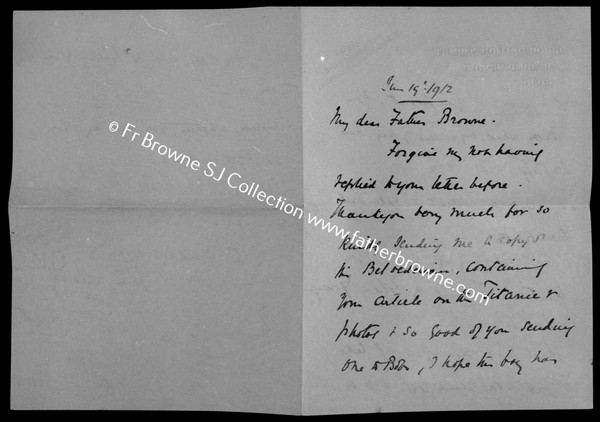 June 19th. 1912
My dear Father Browne.
Forgive my not having
replied to your letter before.
Thank you very much for so
kindly sending me a copy of
the Belvederian, containing
your article on the Titanic &
photos & so good of you sending
one to Bobs, I hope the boy has
© Fr Browne SJ Collection - www.fatherbrowne.com